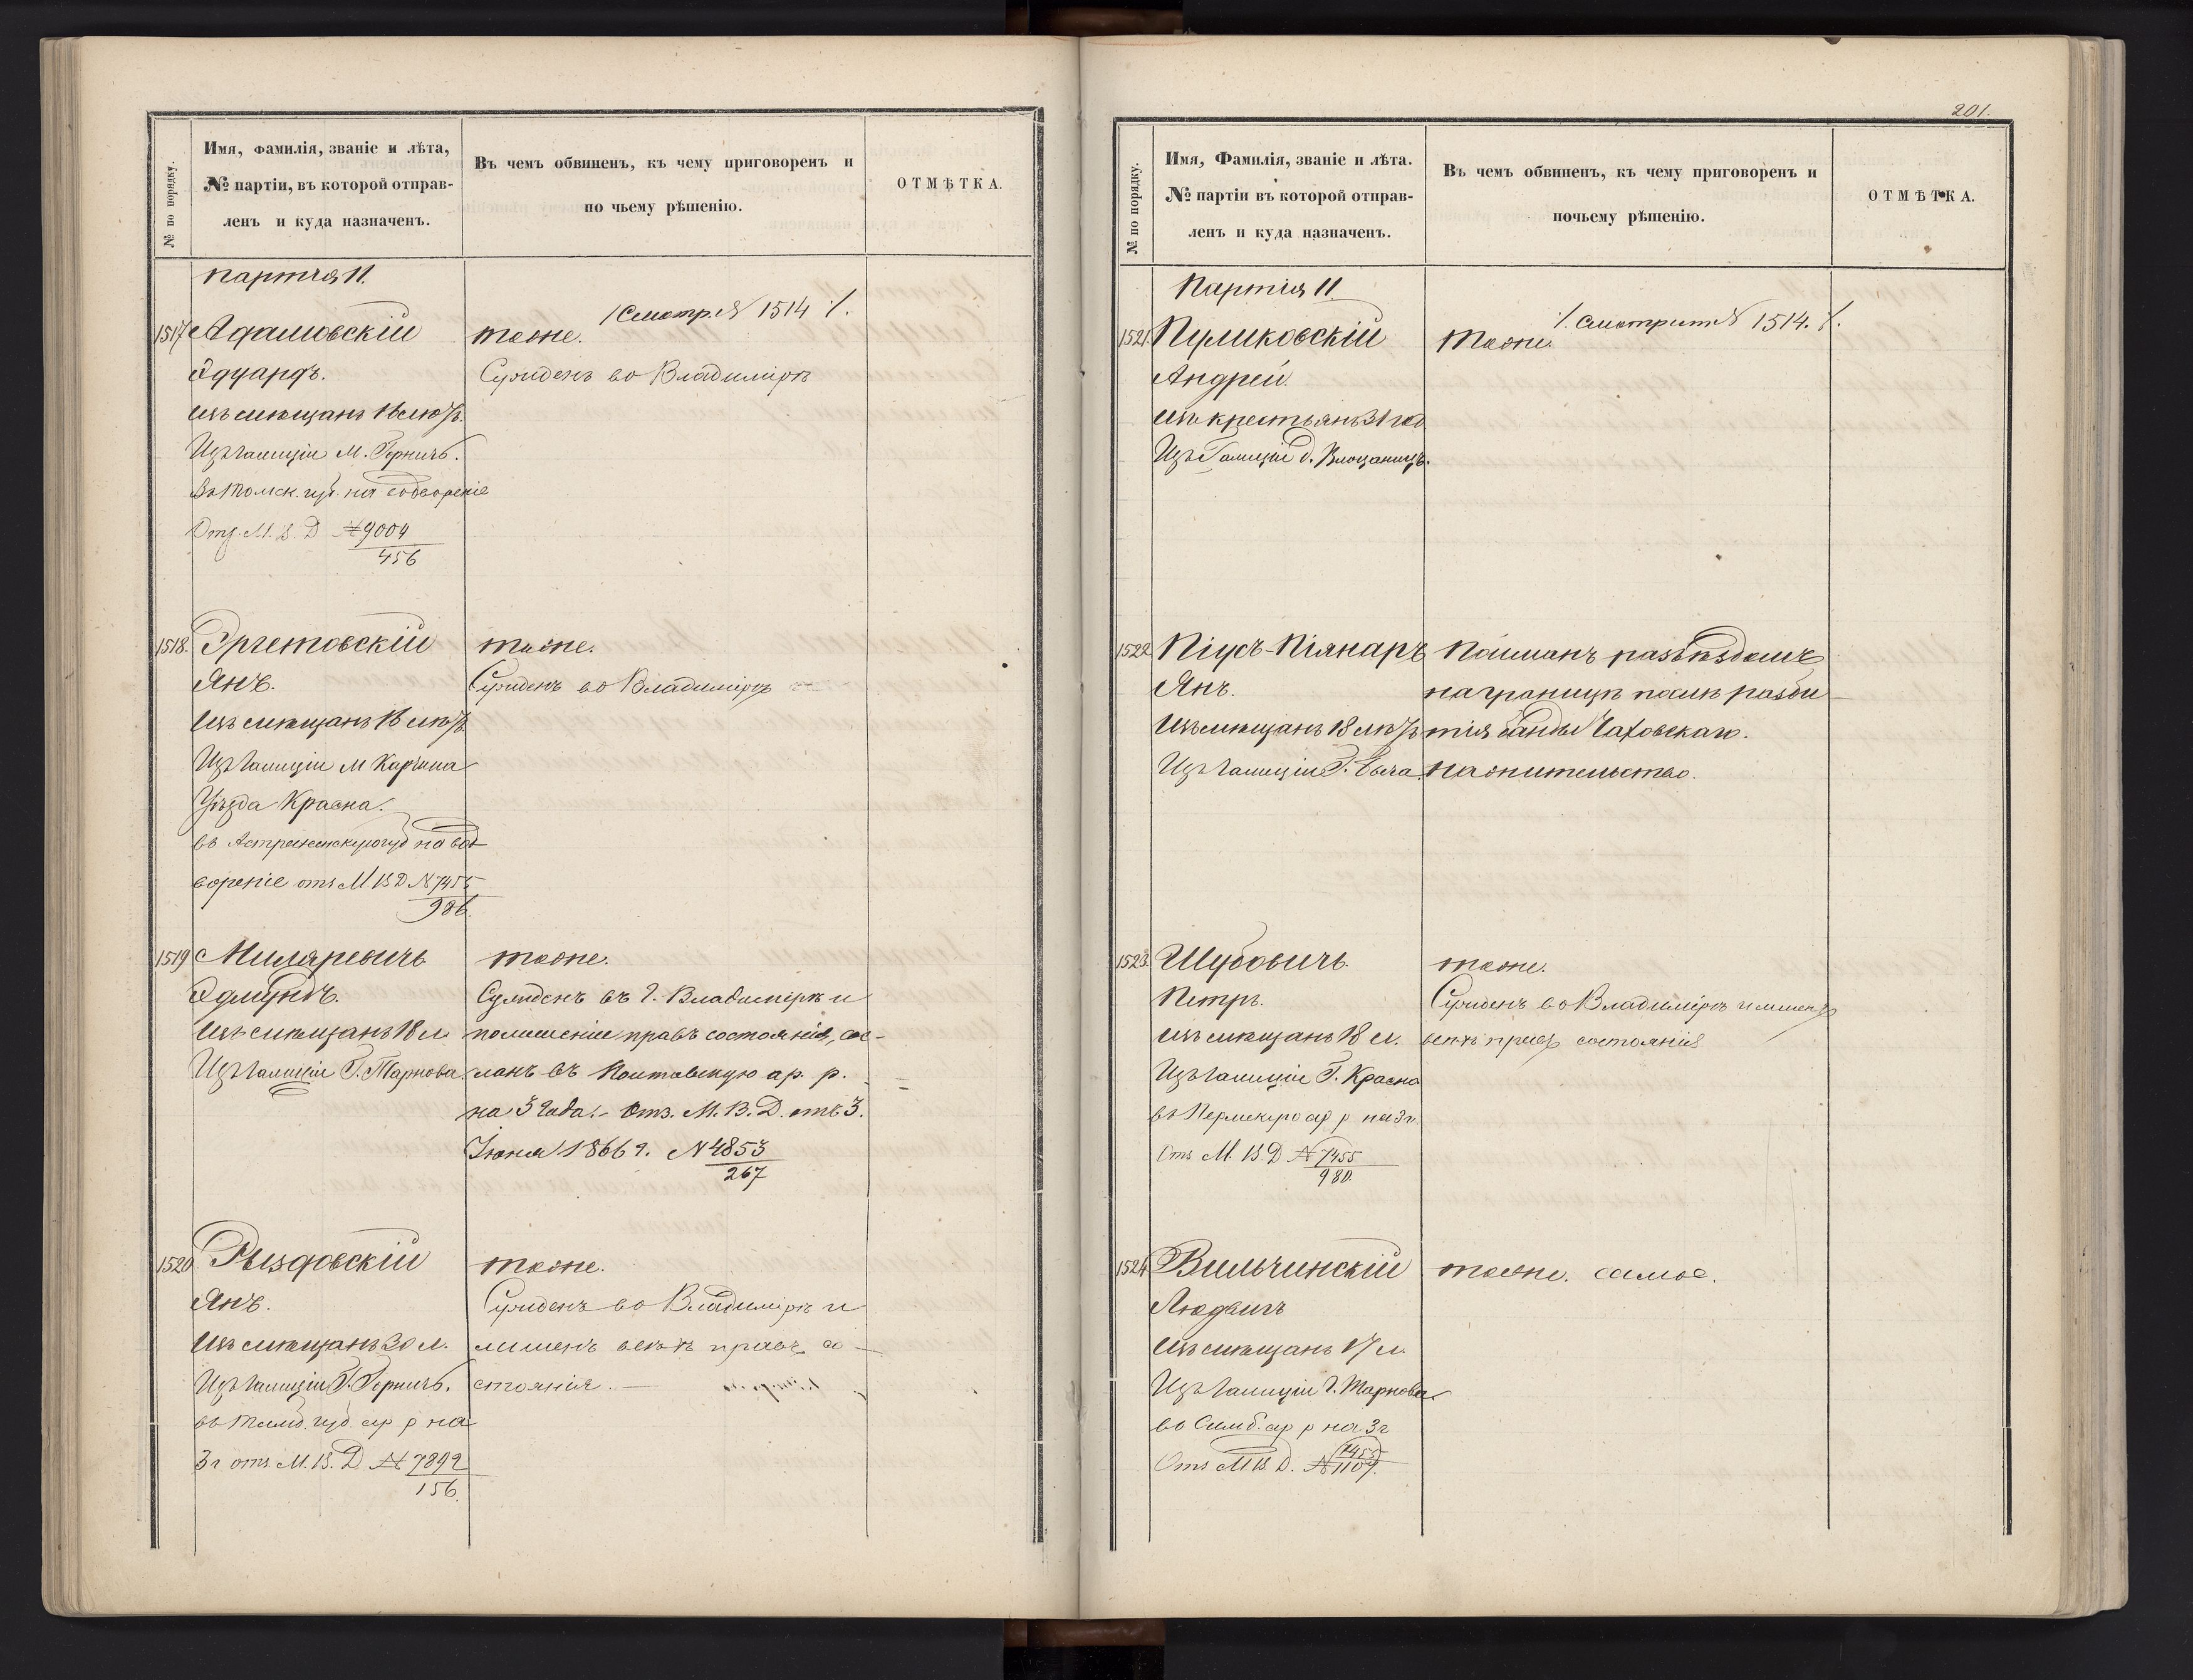 № по порядку.
Имя, фамилія, званіе и лѣта,
№ партіи, въ которой отправ-
ленъ и куда назначенъ.
Въ чемъ обвиненъ, къ чему приговоренъ и
по чьему рѣшенію.
ОТМѢТКА.
Партія 11.
1517 Адамовскій
Эдуардъ.
изъ мѣщанъ 16 лѣтъ.
Изъ Галиціи М.
въ Томск. губ. на водвореніе
Отз. М. В. Д. № 9004
456
/Смотр. № 1514 /.
тоже.
Сужденъ во Владимірѣ
1518. Эргетовскій
Янъ.
изъ мѣщанъ 18 лѣтъ.
Изъ Галиціи М
Уѣзда Красна.
въ Астраханскую губ на вод-
вореніе отз М. В Д № 7455
986.
тоже.
Сужденъ во Владимірѣ
1519 Миляревичъ
Эдмундъ.
изъ мѣщанъ 18 л.
Изъ Галиціи Г. Тарнова.
тоже.
Сужденъ въ г. Владимірѣ и
по лишеніи правъ состоянія, сос-
ланъ въ Полтавскую ар. р.
на 3 года. – Отз. М. В. Д. отъ 3.
Іюня 1866 г. № 4853
267
1520 Рыздовскій
Янъ.
изъ мѣщанъ 20 л.
Изъ Галиціи Г.
въ губ. ар р на
3 г отз. М. В. Д № 7892
156.
тоже.
Сужденъ во Владимірѣ и
лишенъ всѣхъ правъ со-
стоянія. –
201.
№ по порядку.
Имя, Фамилія, званіе и лѣта.
№ партіи въ которой отправ-
ленъ и куда назначенъ.
Въ чемъ обвиненъ, къ чему приговоренъ и
почьему рѣшенію.
ОТМѢТКА.
Партія 11.
1521. Пуликовскій
Андрей.
изъ крестьянъ 31 год
Изъ Галиціи д.
/. смотрит № 1514. /.
Тоже.
1522 Піусъ-Піянаръ
Янъ.
Изъ мѣщанъ 18 лѣтъ
Изъ Галиціи Г.
Пойманъ разъѣздомъ
на границѣ послѣ разби-
тія банды Чаховскаго.
На жительство.
1523. Шубовичъ.
Петръ.
изъ мѣщанъ 18 л.
Изъ Галиціи Г. Красна
въ Пермскую ар р на 3 г.
Отз М. В. Д № 7455
980.
тоже.
Сужденъ во Владимірѣ и лишенъ
всѣхъ правъ состоянія
1524 Вильчинскій
Людвигъ
изъ мѣщанъ 17 л.
Изъ Галиціи г. Тарнова
въ Симб. ар р на 3 г
Отз М. В. Д. № 7455
1109.
тоже. самое.